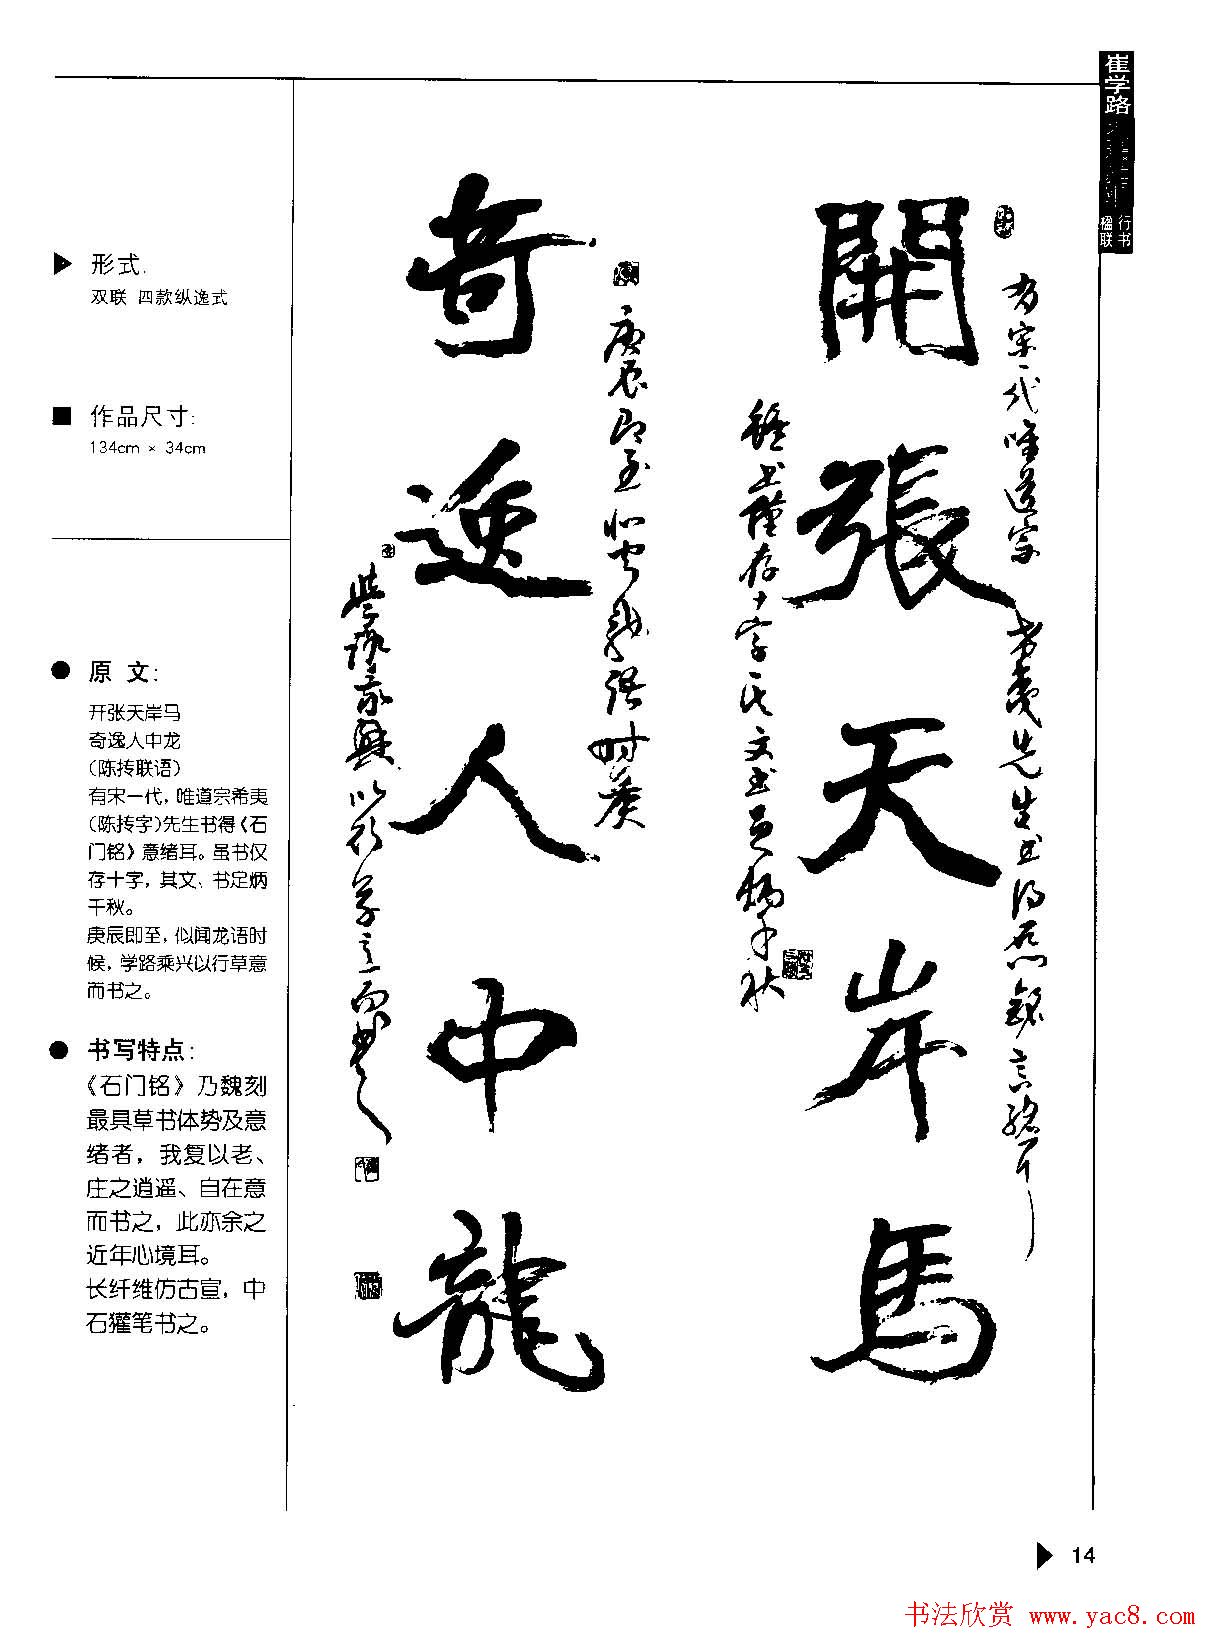 崔学路
行书
楹联
形式:
双联 四款纵逸式
作品尺寸:
134cm × 34cm
原 文:
开张天岸马
奇逸人中龙
（陈抟联语）
有宋一代，唯道宗希夷
（陈抟字）先生书得《石
门铭》意绪耳。虽书仅
存十字，其文、书足炳
千秋。
庚辰即至，似闻龙语时
候，学路乘兴以行草意
而书之。
书写特点:
《石门铭》乃魏刻
最具草书体势及意
绪者，我复以老、
庄之逍遥、自在意
而书之，此亦余之
近年心境耳。
长纤维仿古宣，中
石獾笔书之。
開張天岸馬
有宋一代唯道宗希夷先生书得石门銘意緒耳
雖书僅存十字其文书足炳千秋
奇逸人中龍
庚辰即至似闻龙语时候
學路乘興以行草意而书之
14
书法欣赏 www.yac8.com